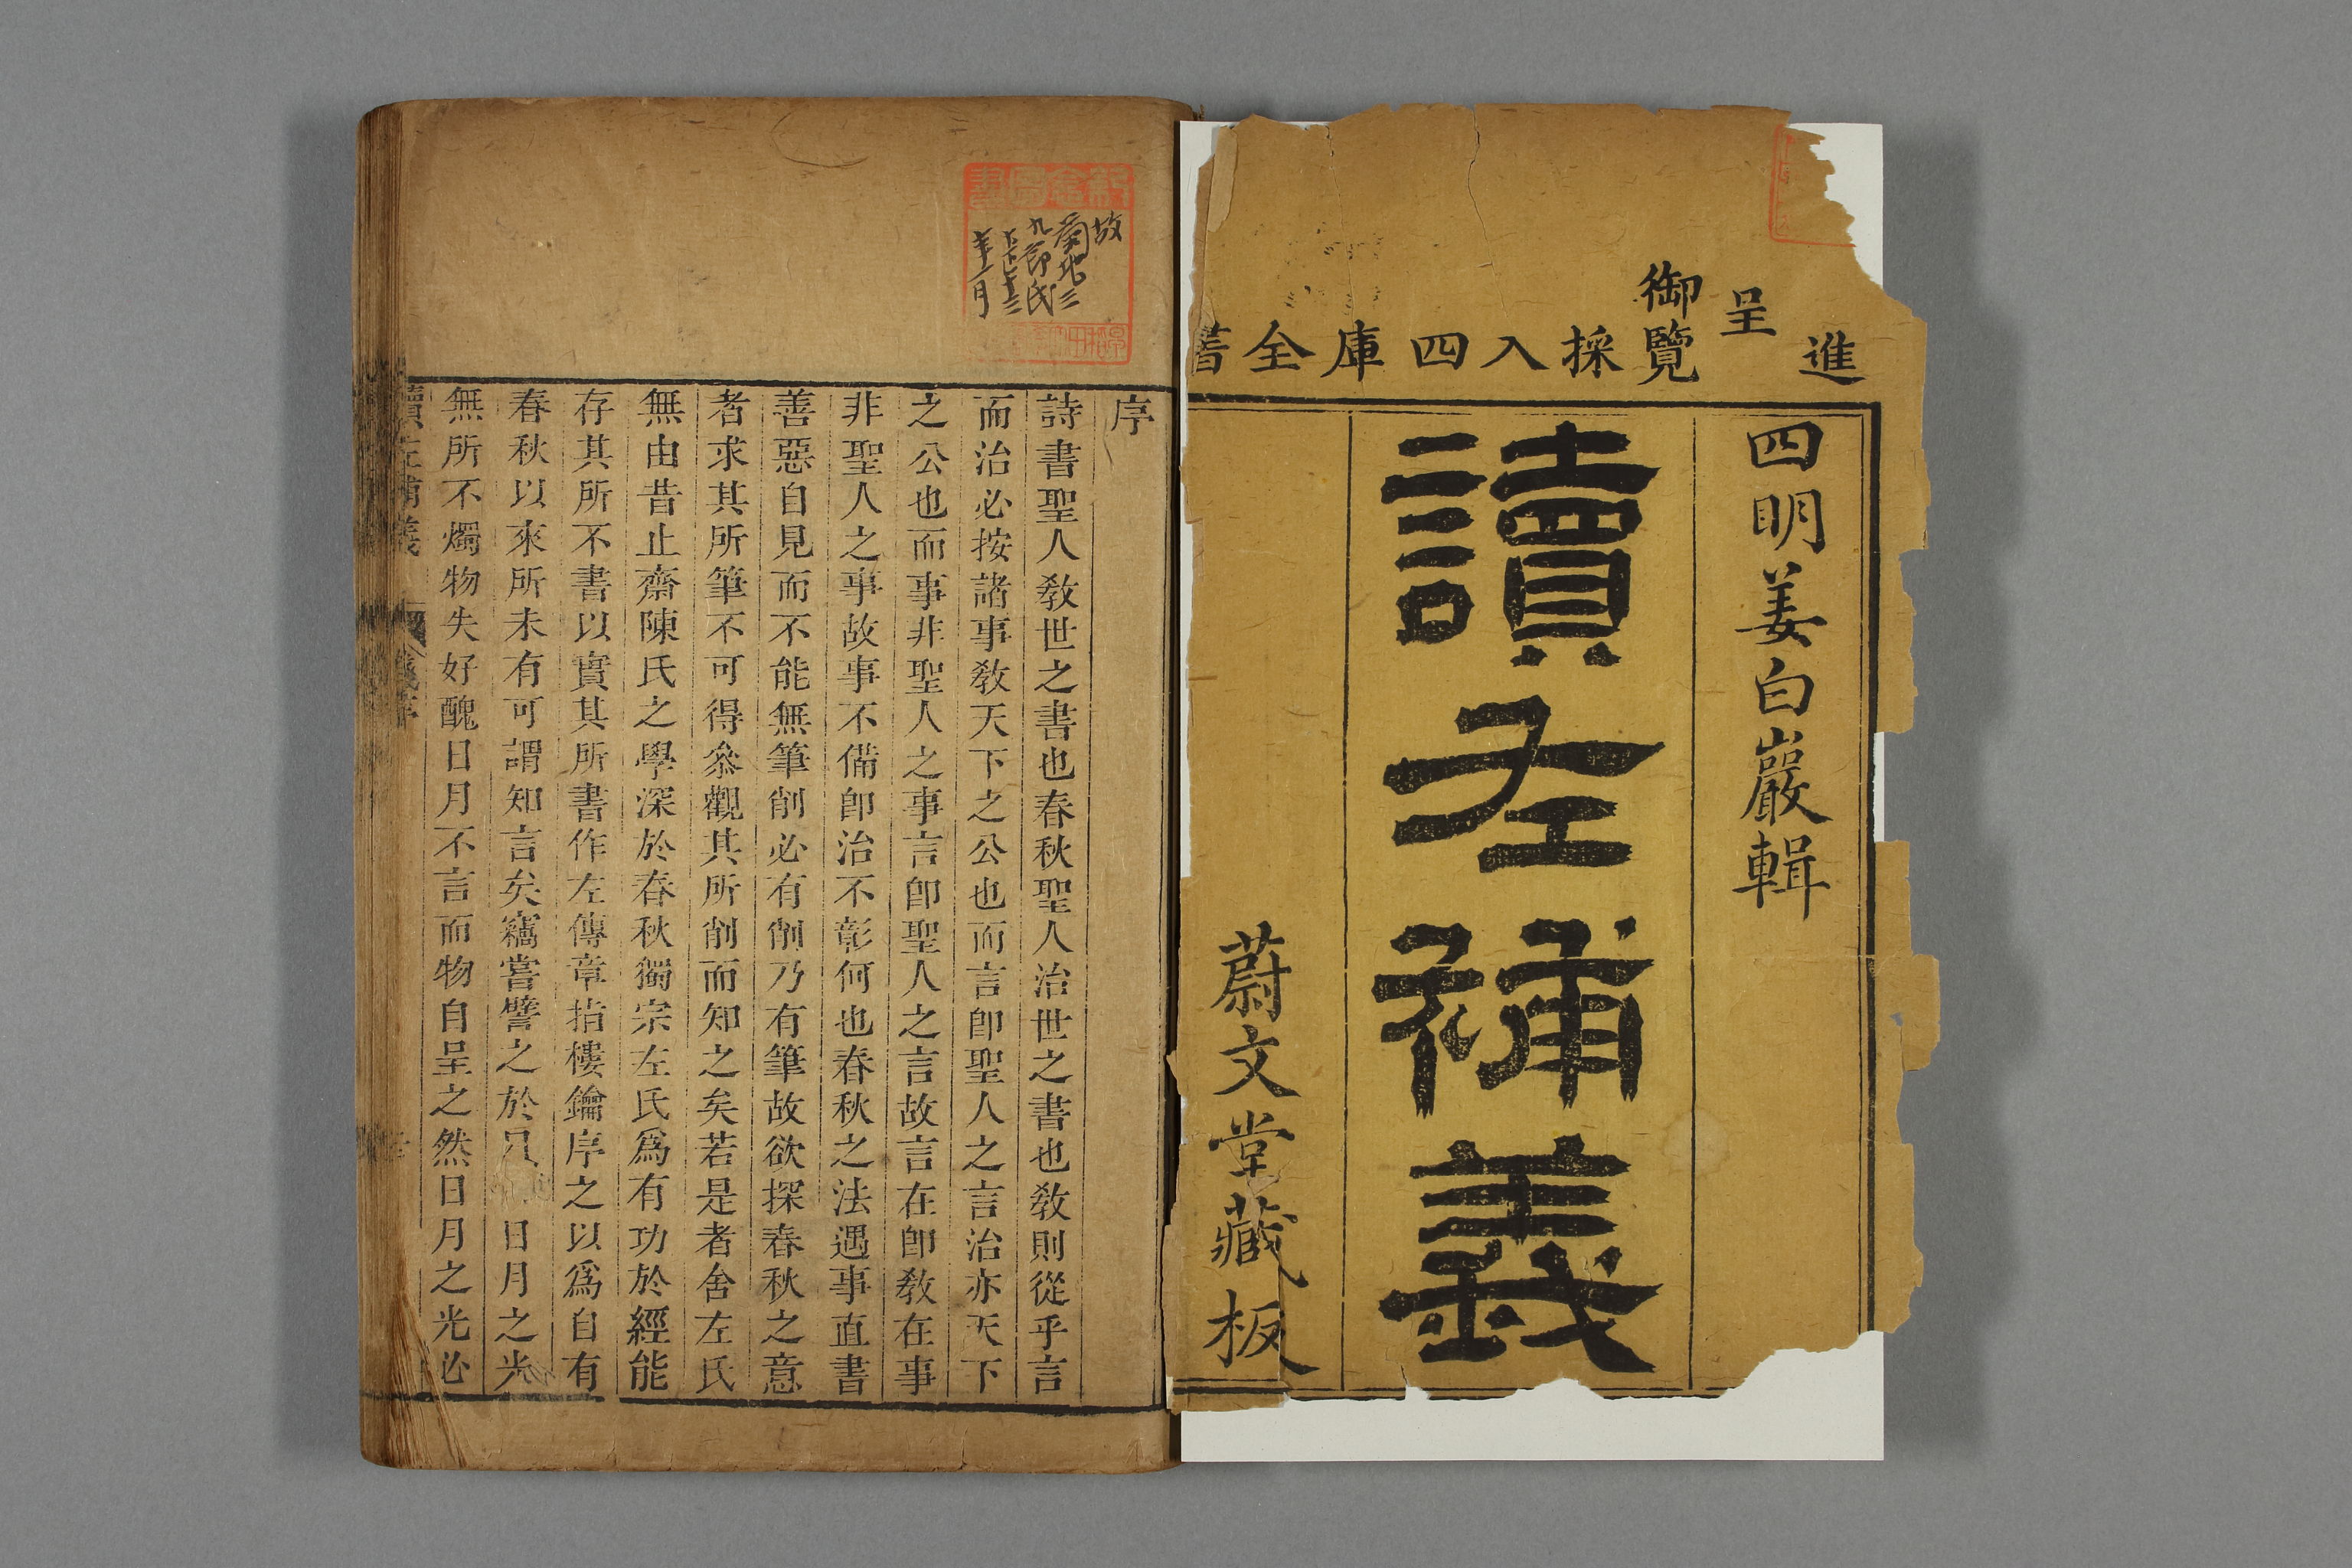 進
呈
御覽採入四庫全書
四明姜白巖輯
讀左補義
蔚文堂藏板
故
九郎氏
年一月
序
詩書聖人敎世之書也春秋聖人治世之書也敎則從乎言
而治必按諸事敎天下之公也而言卽聖人之言治亦天下
之公也而事非聖人之事言卽聖人之言故言在卽敎在事
非聖人之事故事不備卽治不彰何也春秋之法遇事直書
善惡自見而不能無筆削必有削乃有筆故欲探春秋之意
者求其所筆不可得叅觀其所削而知之矣若是者舍左氏
無由昔止齋陳氏之學深於春秋獨宗左氏爲有功於經能
存其所不書以實其所書作左傳章指樓鑰序之以爲自有
春秋以來所未有可謂知言矣竊嘗譬之於日月之光
無所不燭物失好醜日月不言而物自呈之然日月之光必
讀左補義